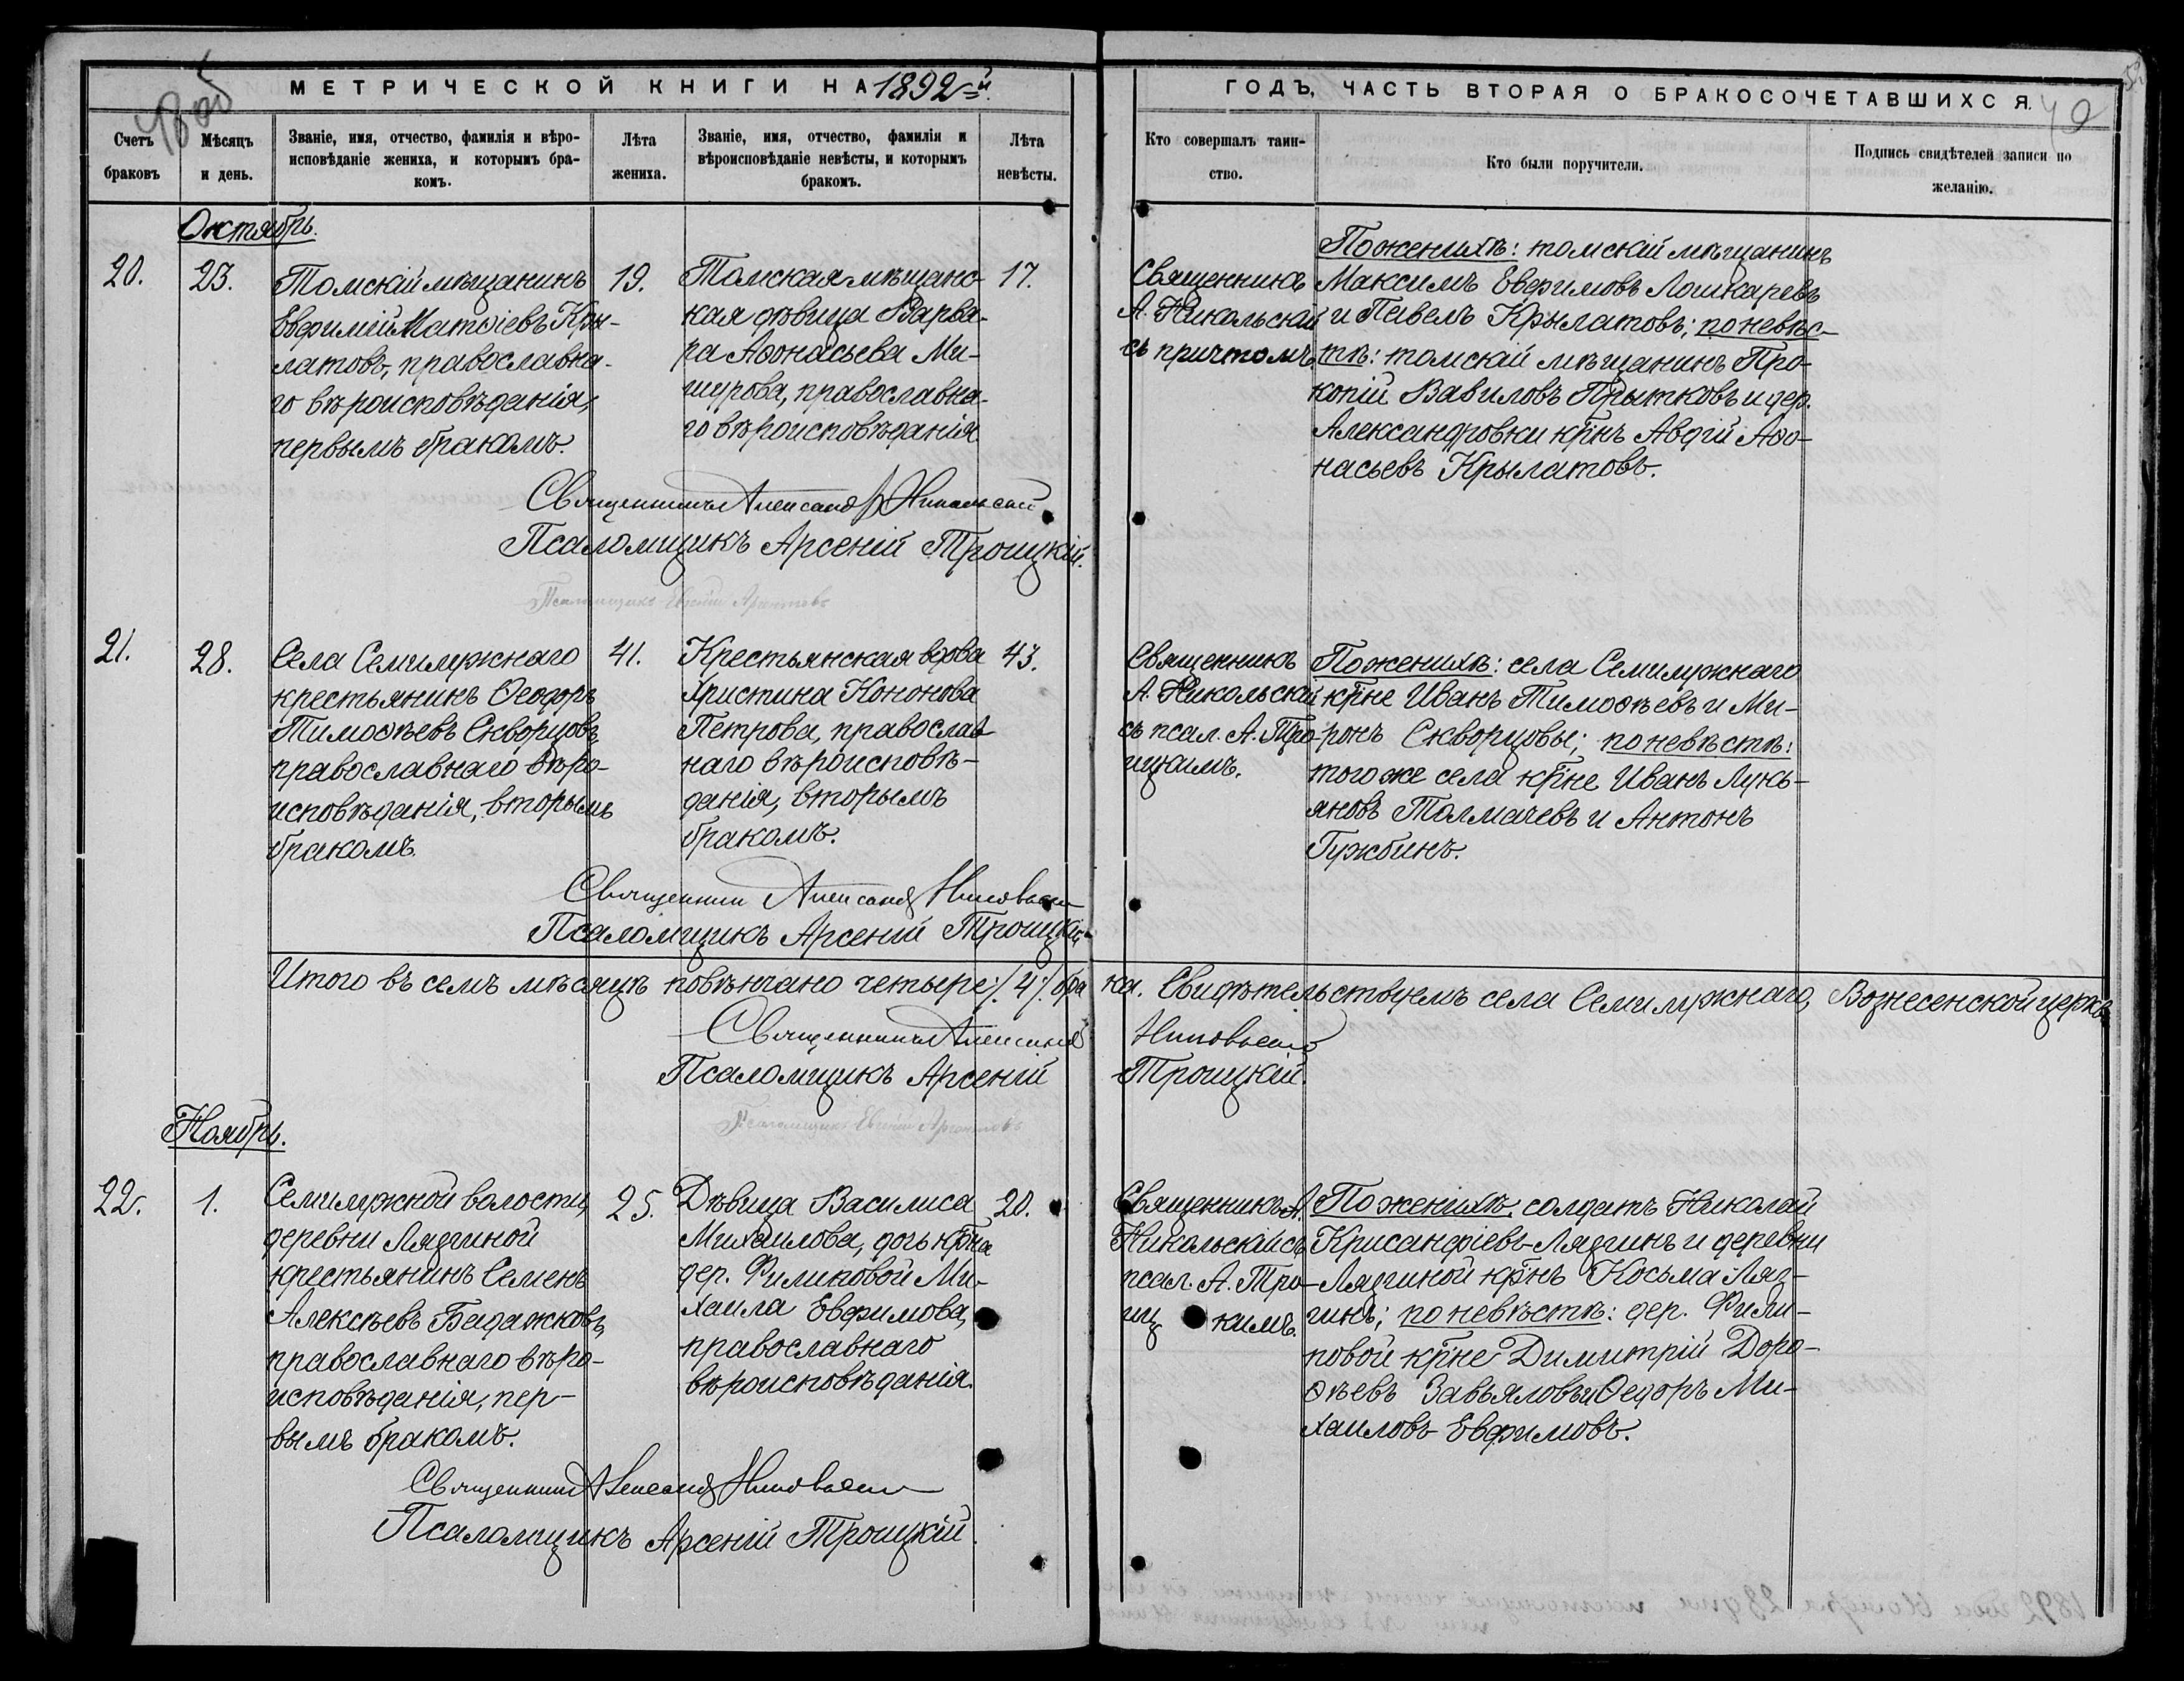 МЕТРИЧЕСКОЙ КНИГИ НА 1892=й
ГОДЪ, ЧАСТЬ ВТОРАЯ О БРАКОСОЧЕТАВШИХСЯ.
Счетъ браковъ
Мѣсяцъ и день.
Званіе, имя, отчество, фамилія и вѣро-
исповѣданіе жениха, и которымъ бра-
комъ.
Лѣта жениха.
Званіе, имя, отчество, фамилія и
вѣроисповѣданіе невѣсты, и которымъ
бракомъ.
Лѣта невѣсты.
Кто совершалъ таин-
ство.
Кто были поручители.
Подпись свидѣтелей записи по
желанію.
Октябрь.
20.
23.
Томскій мѣщанинъ
Евѳимій Матѳіевъ Кры-
латовъ, православна-
го вѣроисповѣданія,
первымъ бракомъ.
19.
Томская мѣщанс-
кая дѣвица Варва-
ра Аѳонасьева Ми-
шурова, православна-
го вѣроисповѣданія
17.
Священникъ
А. Никольскій
съ причтомъ.
По женихѣ: томскій мѣщанинъ
Максимъ Евѳимовъ Лошкаревъ
и Павелъ Крылатовъ; по невѣс-
тѣ: томскій мѣщанинъ Про-
копій Вавиловъ Прытковъ и дер.
Александровки кр̃нъ Авдій Аѳо-
насьевъ Крылатовъ.
Священникъ Александръ Никольскій
Псаломщикъ Арсеній Троицкій.
Псаломщикъ Евгеній
21.
28.
Села Семилужнаго
крестьянинъ Ѳеодоръ
Тимоѳѣевъ Скворцовъ,
православнаго вѣро-
исповѣданія, вторымъ
бракомъ.
41.
Крестьянская вдова
Христина Кононова
Петрова, православ-
наго вѣроисповѣ-
данія, вторымъ
бракомъ.
43.
Священникъ
А. Никольскій
съ псал. А. Тро-
ицкимъ.
По женихѣ: села Семилужнаго
кр̃не Иванъ Тимоѳѣевъ и Ми-
ронъ Скворцовы; по невѣстѣ:
того же села кр̃не Иванъ Лукь-
яновъ Толмачевъ и Антонъ
Гужбинъ.
Священник Александръ Никольскій
Псаломщикъ Арсеній Троицкій
Итого въ семъ мѣсяцѣ повѣнчано четыре /.4/. бра
ка. Свидѣтельствуемъ села Семилужнаго, Вознесенской церкви
Священникъ Александръ Никольскій
Псаломщикъ Арсеній Троицкій.
Псаломщикъ Евгеній
Ноябрь.
22.
1.
Семилужной волости,
деревни Лязгиной
крестьянинъ Семенъ
Алексѣевъ Бадажковъ,
православнаго вѣро-
исповѣданія, пер-
вымъ бракомъ.
25.
Дѣвица Василиса
Михаилова, дочь кр̃на
дер. Филиповой Ми-
хаила Евфимова,
православнаго
вѣроисповѣданія.
20.
Священникъ А.
Никольскій съ
псал. А. Тро-
ицкимъ.
По женихѣ: солдатъ Николай
Крисанфіевъ Лязгинъ и деревни
Лязгиной кр̃нъ Косьма Ляз-
гинъ; по невѣстѣ: дер. Фили-
повой кр̃не Димитрій Доро-
ѳѣевъ Завьяловъ и Ѳедоръ Ми-
хаиловъ Евфимовъ.
Священник Александръ Никольскій
Псаломщикъ Арсеній Троицкій.